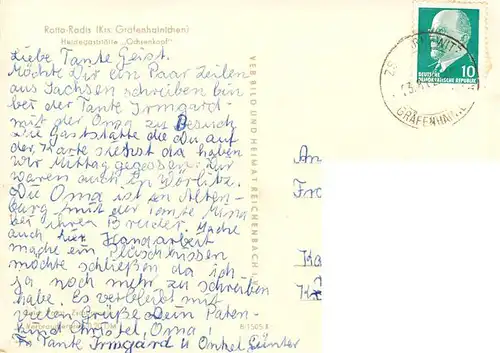 Rotta-Radis (Krs. Gräfenhainichen)
Heuregaststätte „Ochsenkopf"
Liebe Tante Gerst.
Möchte Dir ein Paar Zeilen
aus Sachsen schreiben bin
bei der Tante Irmgard
mit der Oma zu Besuch
Die Gaststätte die Du auf
der Karte siehst da haben
wir Mittag gegessen. Wir
waren auch in Wörlitz.
Die Oma ist in Alten-
burg mit der Tante
bei ihrem Bruder. Mache
auch hier Handarbeit
mache ein Plüschkissen
möchte schließen da ich
ja noch mehr zu schreiben
habe. Es verbleibt mit
vielen Grüße Dein Paten-
kind Christel, Oma!
Tante Irmgard u Onkel Günter
VERLAG BILD UND HEIMAT REICHENBACH I. V.
6/1505
DEUTSCHE
DEMOKRATISCHE REPUBLIK
10
GRÄFENHAINI
An
Fr